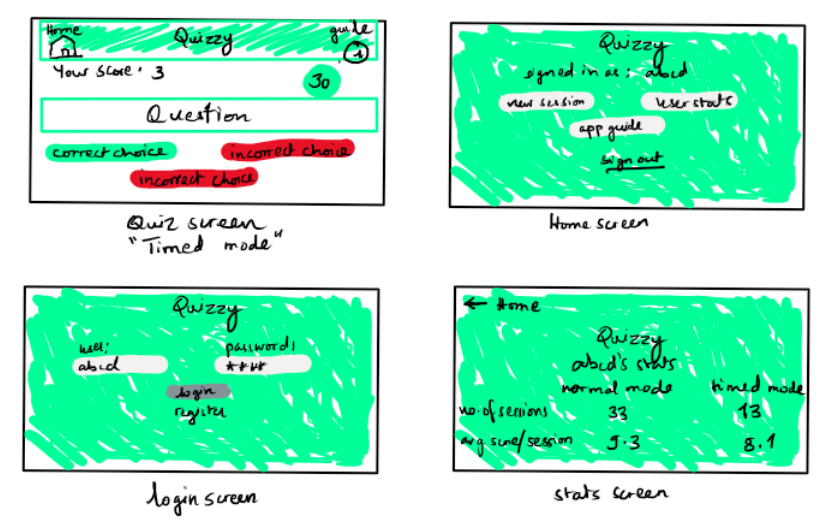 Home Quizzy guide
i
Your score: 3
30
Question
correct choice incorrect choice
incorrect choice
Quiz screen
"Timed mode"
Quizzy
signed in as: abcd
new session user stats
app guide
sign out
Home screen
Quizzy
user: password:
abcd ****
login
register
login screen
← Home
Quizzy
abcd's stats
normal mode timed mode
no. of sessions 33 13
avg. score/session 9.3 8.1
stats screen